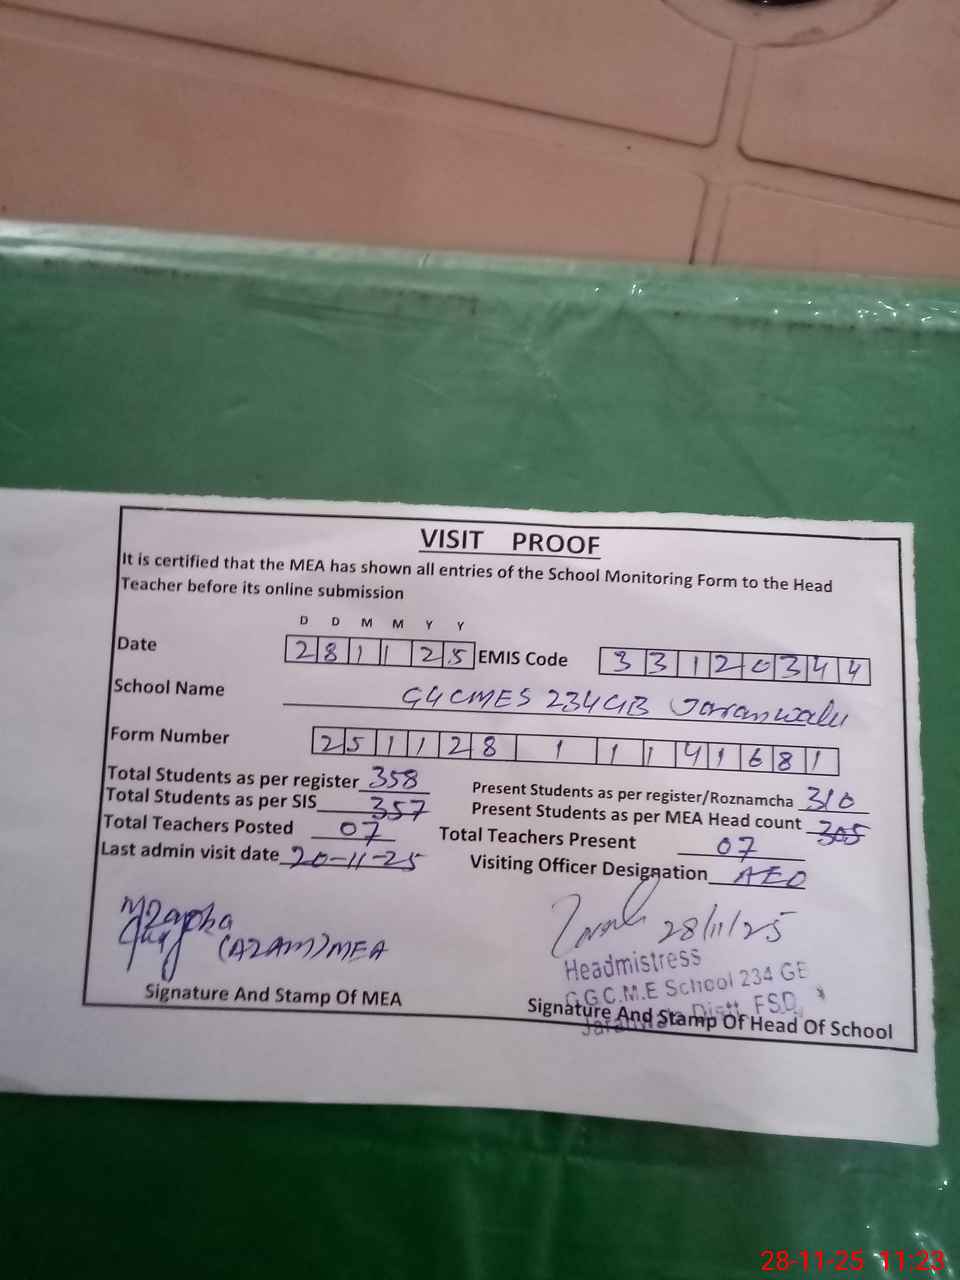 VISIT PROOF
It is certified that the MEA has shown all entries of the School Monitoring Form to the Head
Teacher before its online submission
D D M M Y Y
Date 28 11 25 EMIS Code 33120344
School Name GGCMES 234GB Jaranwala
Form Number 25 11 28 1 1 1 41681
Total Students as per register 358 Present Students as per register/Roznamcha 310
Total Students as per SIS 357 Present Students as per MEA Head count 305
Total Teachers Posted 07 Total Teachers Present 07
Last admin visit date 20-11-25 Visiting Officer Designation AEO
(AZAM) MEA 28/11/25
Headmistress
G.G.C.M.E School 234 GB
Jaranwala Distt. FSD.
Signature And Stamp Of MEA Signature And Stamp Of Head Of School
28-11-25 11:23